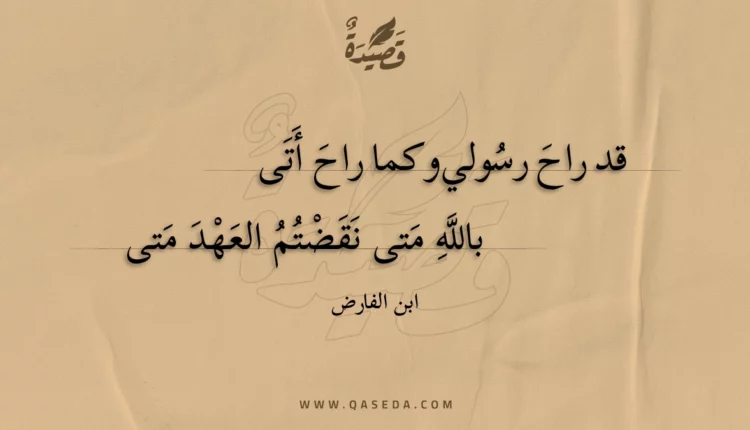 قَصِيْدَةٌ
قد راحَ رسُولي وكما راحَ أَتَى
باللَّهِ مَتى نَقَضْتُمُ العَهْدَ مَتى
ابن الفارض
WWW.QASEDA.COM